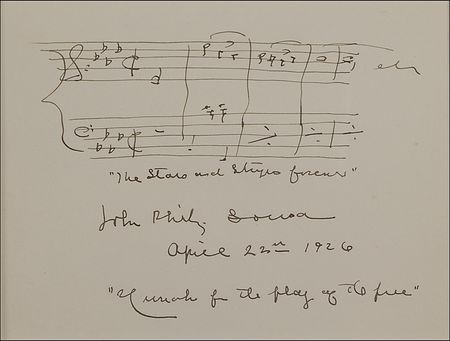 "The Stars and Stripes forever"
John Philip Sousa
April 22nd 1926
"Hurrah for the flag of the free"